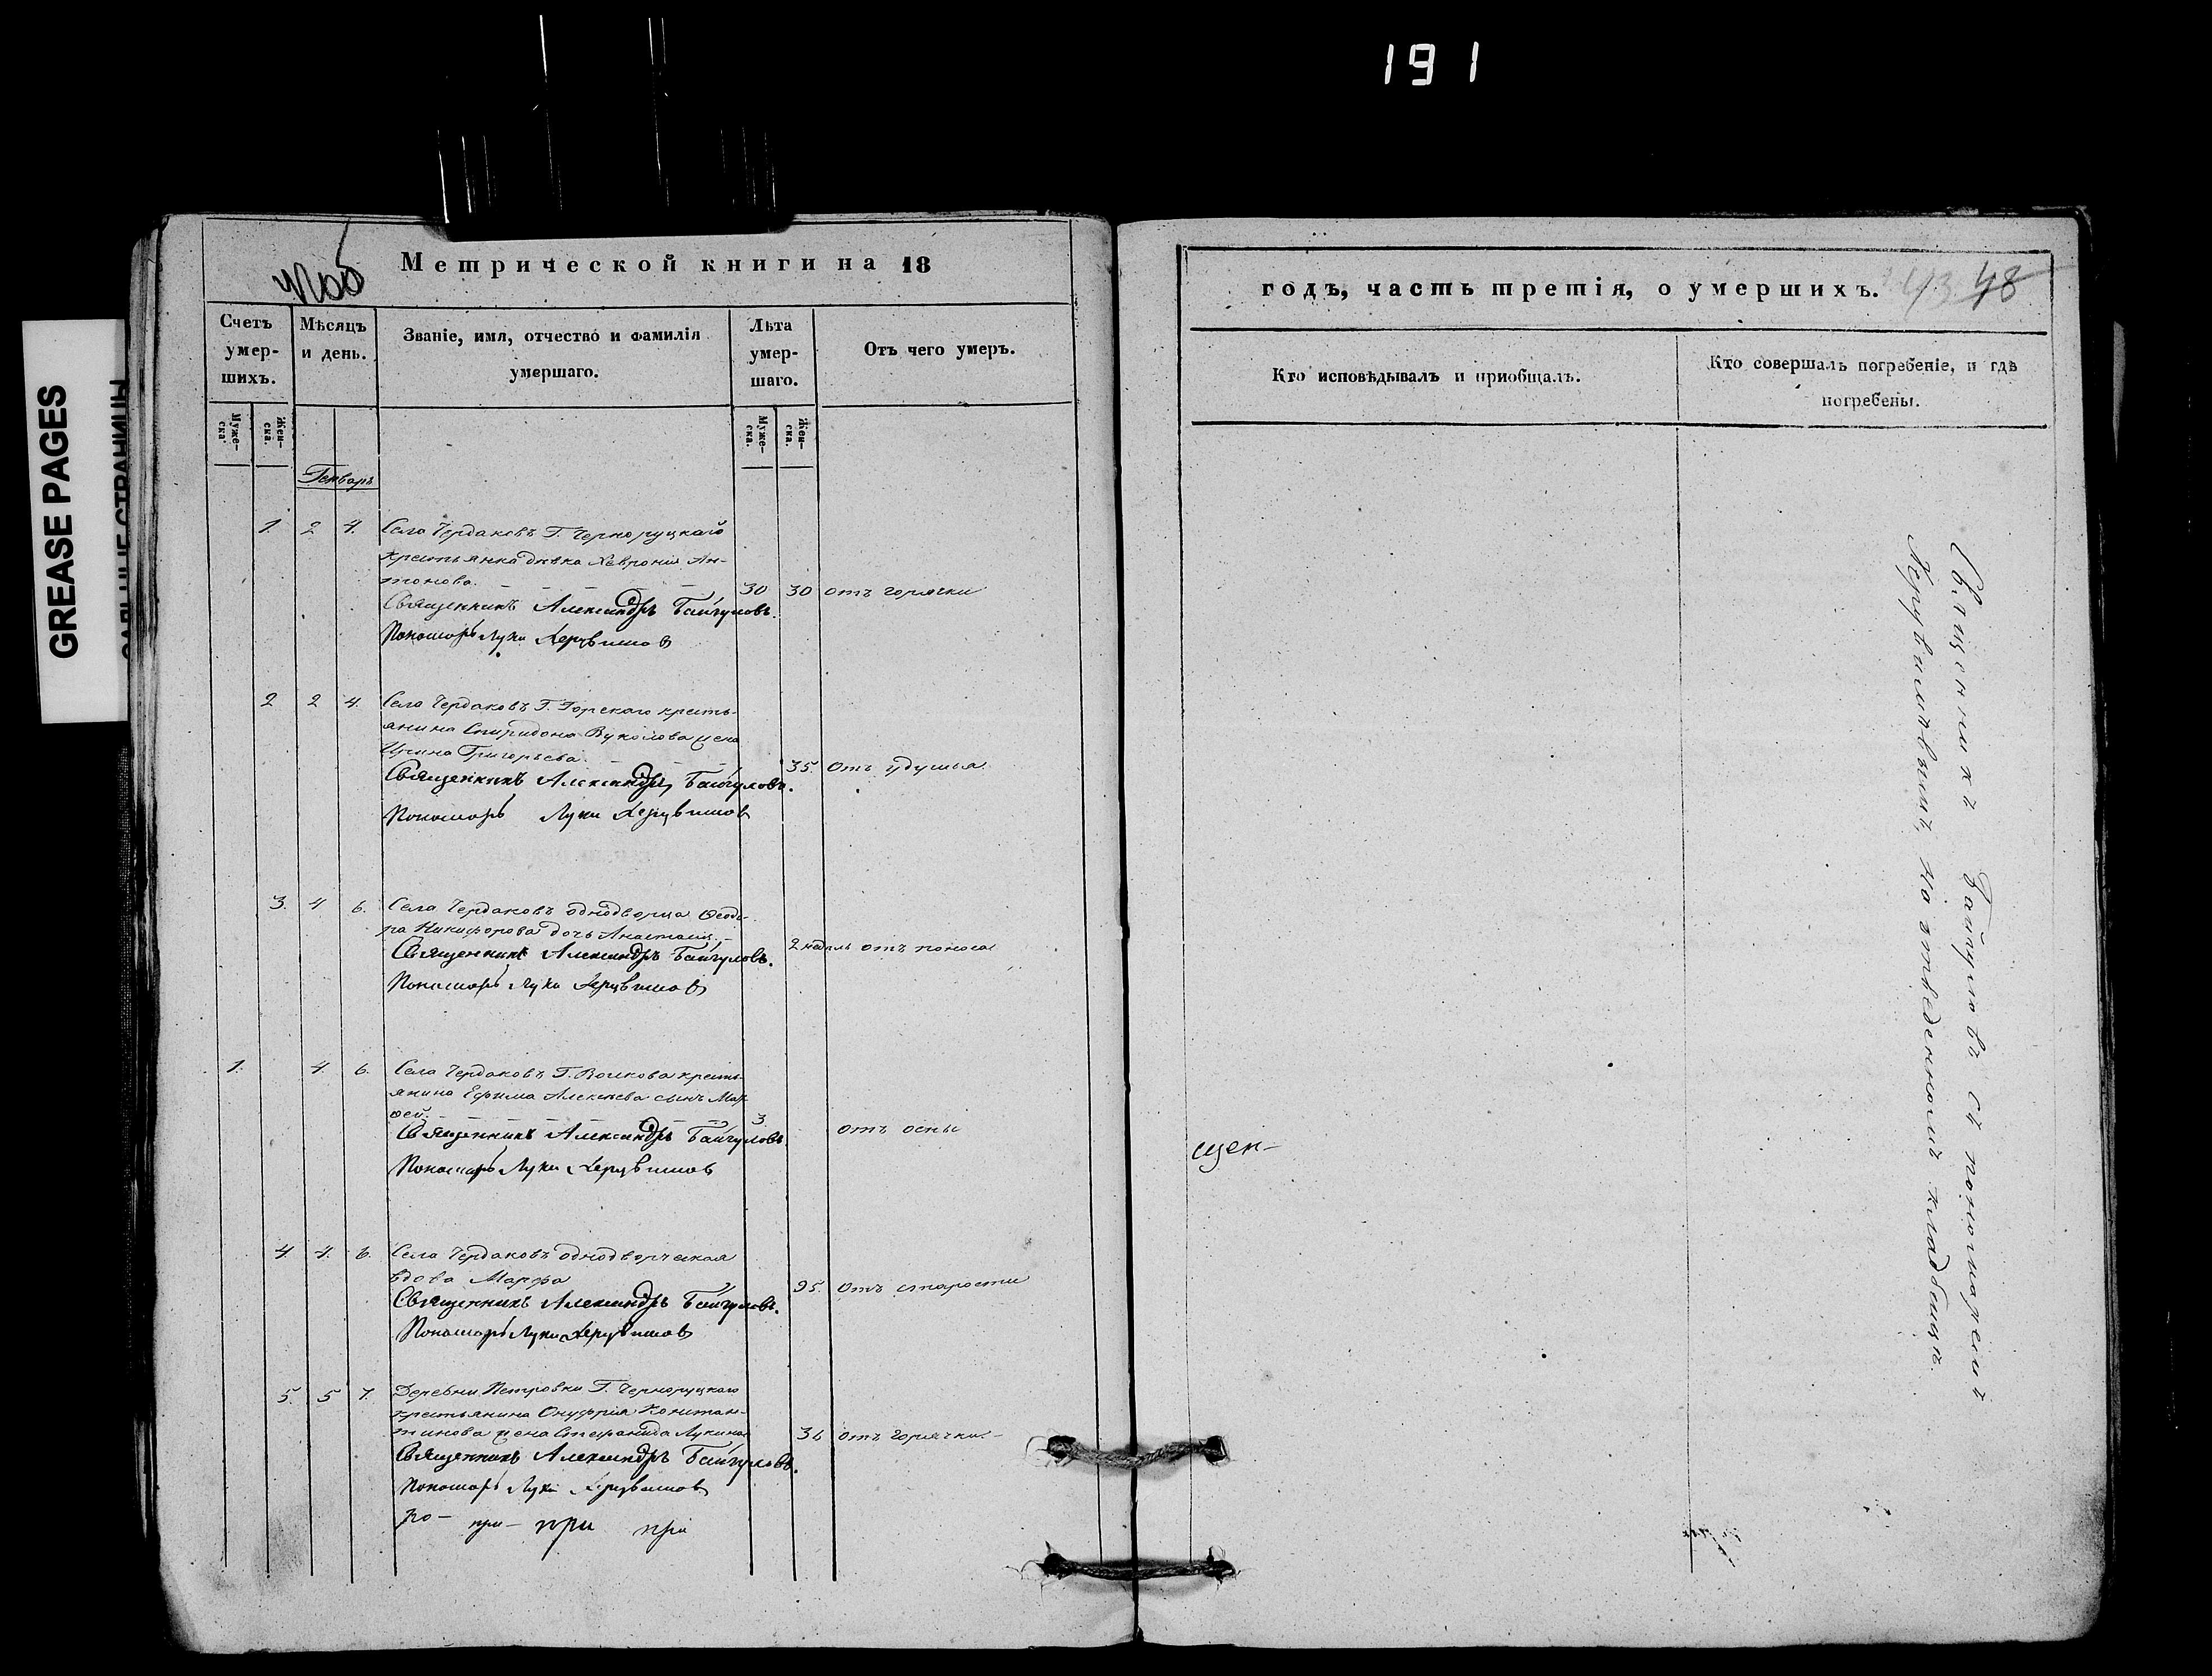 191
GREASE PAGES
Метрической книги на 18
Счетъ
умер-
шихъ.
Мѣсяцъ
и день.
Званіе, имя, отчество и фамилія
умершаго.
Лѣта
умер-
шаго.
Отъ чего умеръ.
Муже-
ска.
Жен-
ска.
Муже-
ска.
Жен-
ска.
Генварь
1. 2 4. Села Чердаковъ Г. Черноруцкаго
крестьянка дѣвка Хевронія Ан-
тонова. 30 30 отъ горячки
Священникъ Александръ Байгуловъ.
Пономарь Лука Херувимовъ
2 2 4. Села Чердаковъ Г. Горскаго кресть-
янина Спиридона Вуколова жена
Ирина Григорьева. 35. отъ удушья.
Священникъ Александръ Байгуловъ.
Пономарь Лука Херувимовъ
3. 4 6. Села Чердаковъ однодворца Ѳеодо-
ра Никифорова дочь Анастасія. 2 недѣль отъ поноса
Священникъ Александръ Байгуловъ.
Пономарь Лука Херувимовъ
1. 4. 6. Села Чердаковъ Г. Волкова кресть-
янина Ефима Алексѣева сынъ
3 отъ оспы
Священникъ Александръ Байгуловъ.
Пономарь Лука Херувимовъ
4. 4. 6. Села Чердаковъ однодворческая
вдова Марфа 95. отъ старости
Священникъ Александръ Байгуловъ.
Пономарь Лука Херувимовъ
5. 5 7. Деревни Петровки Г. Черноруцкаго
крестьянина Онуфрія Констан-
тинова жена Стефанида Лукина 36 отъ горячки.
Священникъ Александръ Байгуловъ.
Пономарь Лука Херувимовъ
ро- при- при при
годъ, часть третія, о умершихъ.
43 48
Кто исповѣдывалъ и приобщалъ.
Кто совершалъ погребеніе, и гдѣ
погребены.
Священникъ Байгуловъ съ пономаремъ
Херувимовымъ, на отведенномъ кладбищѣ.
щен-